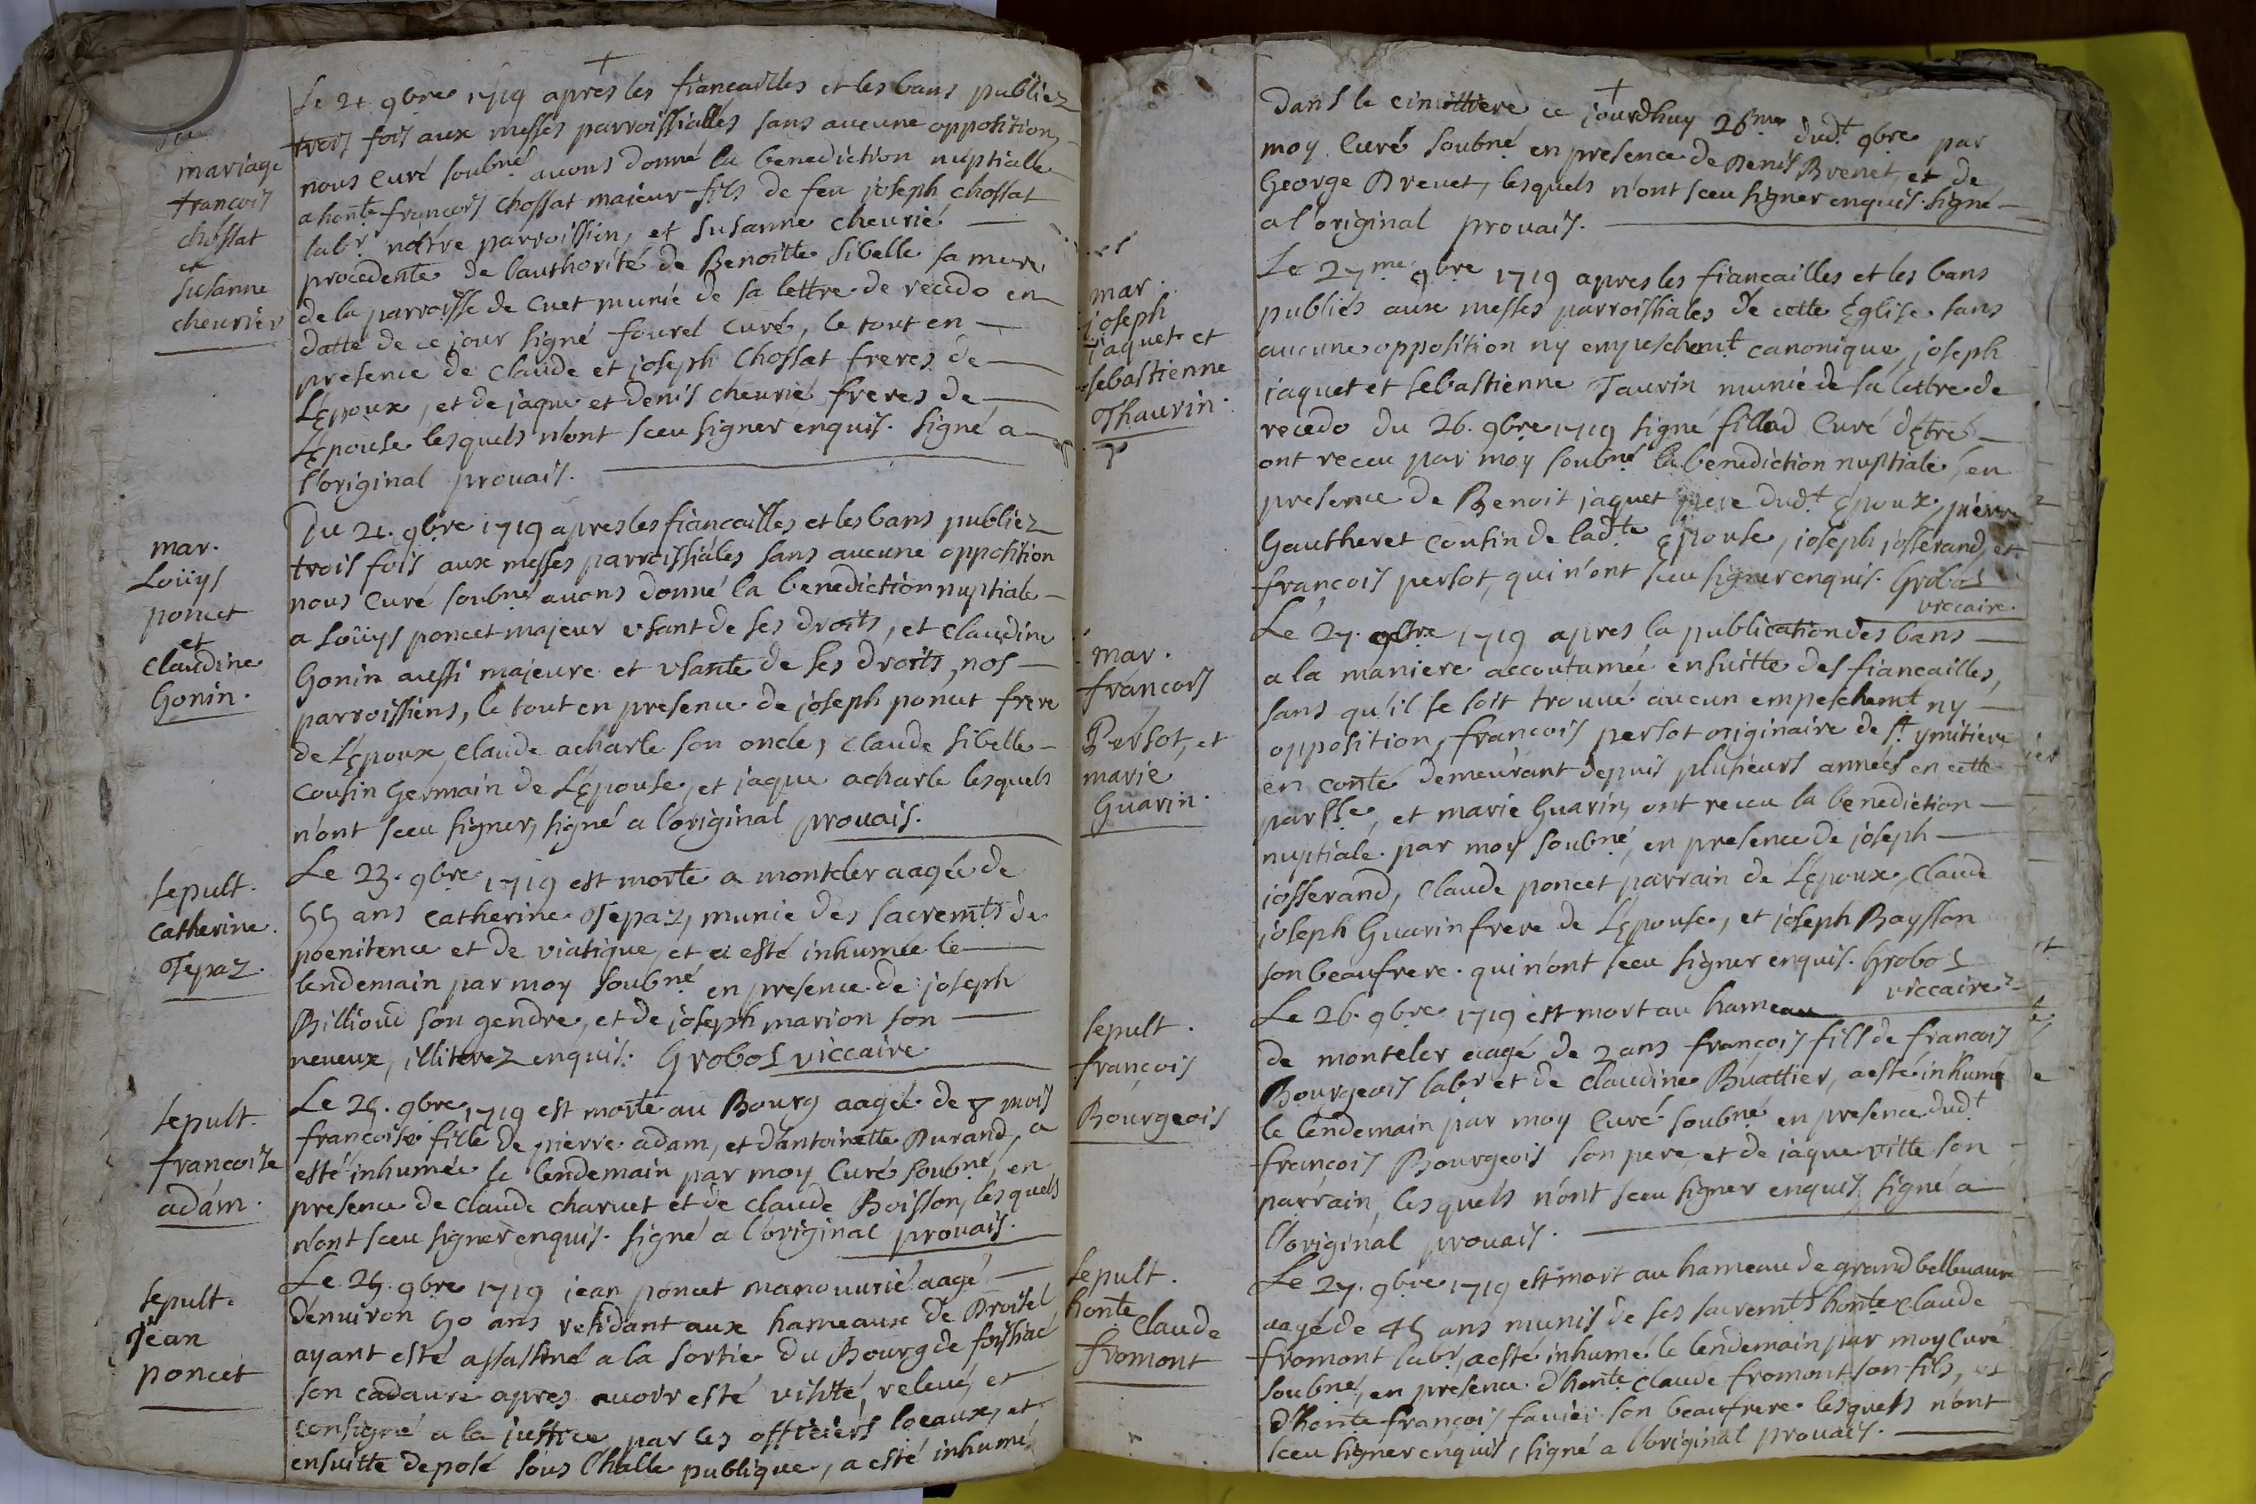 mariage
francois
chossat
et
Susanne
cheurier
Le 21 9bre 1719 apres les fiancailles et les bans publiez
trois fois aux messes parroissialles sans aucune opposition
nous Curé soubné auons donné la benediction nuptialle
a honte francois Chossat majeur fils de feu joseph Chossat
labr nostre parroissien, et Susanne cheurié
procedente de l'authorité de Benoitte Sibelle sa mere
de la parroisse de Cuet munie de sa lettre de recedo en
datte de ce jour signé fourel Curé, le tout en
presence de Claude et joseph Chossat freres de
L'Epoux, et de jaque et denis cheurié freres de
L'Epouse lesquels n'ont sceu signer enquis. Signé a
l'original prouais.
mar.
Loüys
poncet
et
Claudine
Gonin.
Du 21. 9bre 1719 apres les fiancailles et les bans publiez
trois fois aux messes parroissiales sans aucune opposition
nous Curé soubné auons donné la benediction nuptiale
a Loüys poncet majeur usant de ses droits, et Claudine
Gonin aussi majeure et usante de ses droits, nos
parroissiens, le tout en presence de joseph poncet frere
de L'Epoux, Claude acharle son oncle, Claude Sibelle
Cousin Germain de L'Epouse, et jaque acharle lesquels
n'ont sceu signer, signé a l'original prouais.
Sepult.
Catherine
Tepaz.
Le 23. 9bre 1719 est morte a monteler aagée de
55 ans Catherine Tepaz, munie des sacremts de
poenitence et de viatique, et a esté inhumée le
lendemain par moy soubné en presence de joseph
Billioud son gendre, et de joseph marion son
neueux, illiterez enquis. Grobos viccaire.
Sepult.
francoise
adam.
Le 25. 9bre 1719 est morte au Bourg aagée de 8 mois
françoise fille de pierre adam, et d'antoinette Durand, a
esté inhumée le lendemain par moy Curé soubné, en
presence de Claude charuet et de Claude Boisson, lesquels
n'ont sceu signer enquis. signé a l'original prouais.
Sepult.
Jean
poncet
Le 25. 9bre 1719 jean poncet manouurié aagé
d'enuiron 50 ans residant aux hameaux de Broisel
ayant esté assassiné a la sortie du Bourg de foissiac
son cadaure apres auoir esté visité, releué, et
consigné a la justice par les officiers locaux, et
ensuitte deposé sous l'halle publique, a esté inhumé
dans le cimittiere ce jourdhuy 26me dudt 9bre par
moy Curé soubné en presence de Denis Breuet, et de
George Breuet, lesquels n'ont sceu signer enquis. signé
a l'original prouais.
mar.
joseph
jaquet et
sebastienne
Thaurin.
Le 27me 9bre 1719 apres les fiancailles et les bans
publiés aux messes parroissiales de cette Eglise sans
aucune opposition ny empeschemt canonique, joseph
jaquet et sebastienne Taurin munie de sa lettre de
recedo du 26. 9bre 1719 signé fillod Curé d'Etrés
ont receu par moy soubné la benediction nuptiale, en
presence de Benoit jaquet pere dudt Epoux, pierre
Gautheret cousin de ladte Epouse, joseph josserand, et
françois persot, qui n'ont sceu signer enquis. Grobos
viccaire.
mar.
francois
Persot, et
marie
Guarin.
Le 27. 9bre 1719 apres la publication des bans
a la maniere accoutumée ensuitte des fiancailles,
sans qu'il se soit trouué aucun empeschemt ny
opposition, françois persot originaire de st ymitiere
en conté demeurant depuis plusieurs années en cette
parsse, et marie Guarin, ont receu la benediction
nuptiale par moy soubné, en presence de joseph
josserand, Claude poncet parrain de L'Epoux, Claude
joseph Guarin frere de L'Epouse, et joseph Baysson
son beaufrere. qui n'ont sceu signer enquis. Grobos
viccaire
Sepult.
françois
Bourgeois
Le 26. 9bre 1719 est mort au hameau
de monteler aagé de 2 ans françois fils de francois
Bourgeois labr et de Claudine Buattier, a esté inhumé
le lendemain par moy Curé soubné en presence dudt
françois Bourgeois son pere, et de jaque vitte son
parrain, lesquels n'ont sceu signer enquis, signé a
l'original prouais.
Sepult.
honte
Claude
fromont
Le 27. 9bre 1719 est mort au hameau de grand belleuaure
aagé de 45 ans munis de ses sacremts honte Claude
fromont labr, a esté inhumé le lendemain par moy Curé
soubné, en presence d'honte Claude fromont son fils, et
d'honte françois fauier son beaufrere lesquels n'ont
sceu signer enquis, signé a l'original prouais.